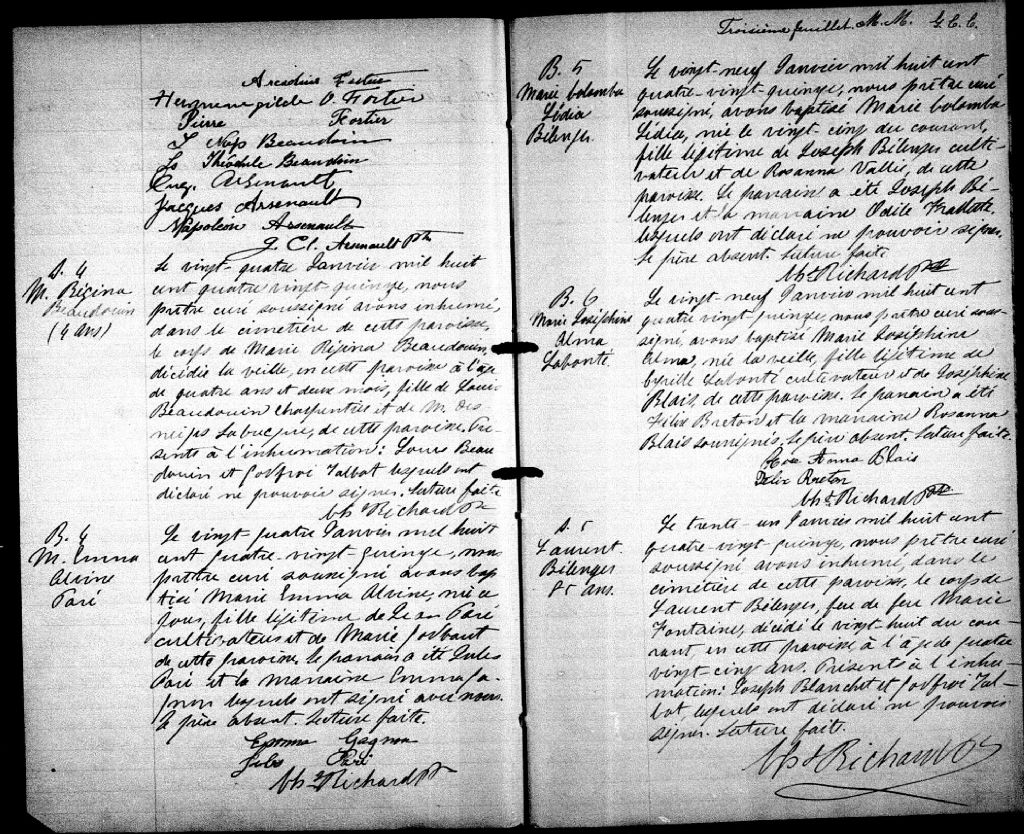 Arcadius Fortier
Hermenegilde O. Fortier
Pierre Fortier
J Nap Beaudoin
Ls Théodule Beaudoin
Eug. Arsenault
Jacques Arsenault
Napoléon Arsenault
J. Cl. Arsenault Ptre
S. 4
M. Régina
Beaudouin
(4 ans)
Le vingt-quatre Janvier mil huit
cent quatre vingt-quinze, nous
prêtre curé soussigné avons inhumé,
dans le cimetière de cette paroisse,
le corps de Marie Régina Beaudouin,
décédée la veille, en cette paroisse à l'âge
de quatre ans et deux mois, fille de Louis
Beaudouin charpentier et de M. des
neiges Labrecque, de cette paroisse. Pré-
sents à l'inhumation: Louis Beau
douin et Godfroi Talbot lesquels ont
déclaré ne pouvoir signer. Lecture faite
Chs Richard Ptr
B. 4
M. Emma
Alvine
Paré
Le vingt quatre Janvier mil huit
cent quatre-vingt-quinze, nous
prêtre curé soussigné avons bap
tisé Marie Emma Alvine, née ce
jour, fille légitime de Jean Paré
cultivateur et de Marie Gosbout
de cette paroisse. Le parrain a été Jules
Paré et la marraine Emma Ga-
gnon lesquels ont signé avec nous.
Le père absent. Lecture faite.
Emma Gagnon
Jules Paré
Chs Richard Ptr
Troisième feuillet. M. M. G. C. C.
B. 5
Marie Colomba
Lédia
Bélenger
Le vingt-neuf Janvier mil huit cent
quatre-vingt-quinze, nous prêtre curé
soussigné, avons baptisé Marie Colomba
Lédia, née le vingt-cinq du courant,
fille légitime de Joseph Bélenger culti-
vateur et de Rosanna Vallée, de cette
paroisse. Le parrain a été Joseph Bé-
lenger et la marraine Odile
lesquels ont déclaré ne pouvoir signer.
Le père absent. Lecture faite
Chs Richard Ptr
B. 6
Marie Joséphine
Alma
Labonté.
Le vingt-neuf Janvier mil huit cent
quatre vingt-quinze, nous prêtre curé sous-
signé, avons baptisé Marie Joséphine
Alma, née la veille, fille légitime de
Cyrille Labonté cultivateur et de Joséphine
Blais, de cette paroisse. Le parrain a été
Félix Breton et la marraine Rosanna
Blais soussignés. Le père absent. Lecture faite.
Rose Anna Blais
Felix Breton
Chs Richard Ptr
S. 5
Laurent
Bélenger
85 ans.
Le trente-un Janvier mil huit cent
quatre-vingt-quinze, nous prêtre curé
soussigné avons inhumé, dans le
cimétière de cette paroisse, le corps de
Laurent Bélenger, feu de feue Marie
Fontaine, décédé le vingt huit du cou-
rant, en cette paroisse, à l'âge de quatre
vingt-cinq ans. Présents à l'inhu-
mation: Joseph Blanchet et Godfroi Tal-
bot lesquels ont déclaré ne pouvoir
signer. Lecture faite.
Chs Richard Ptr